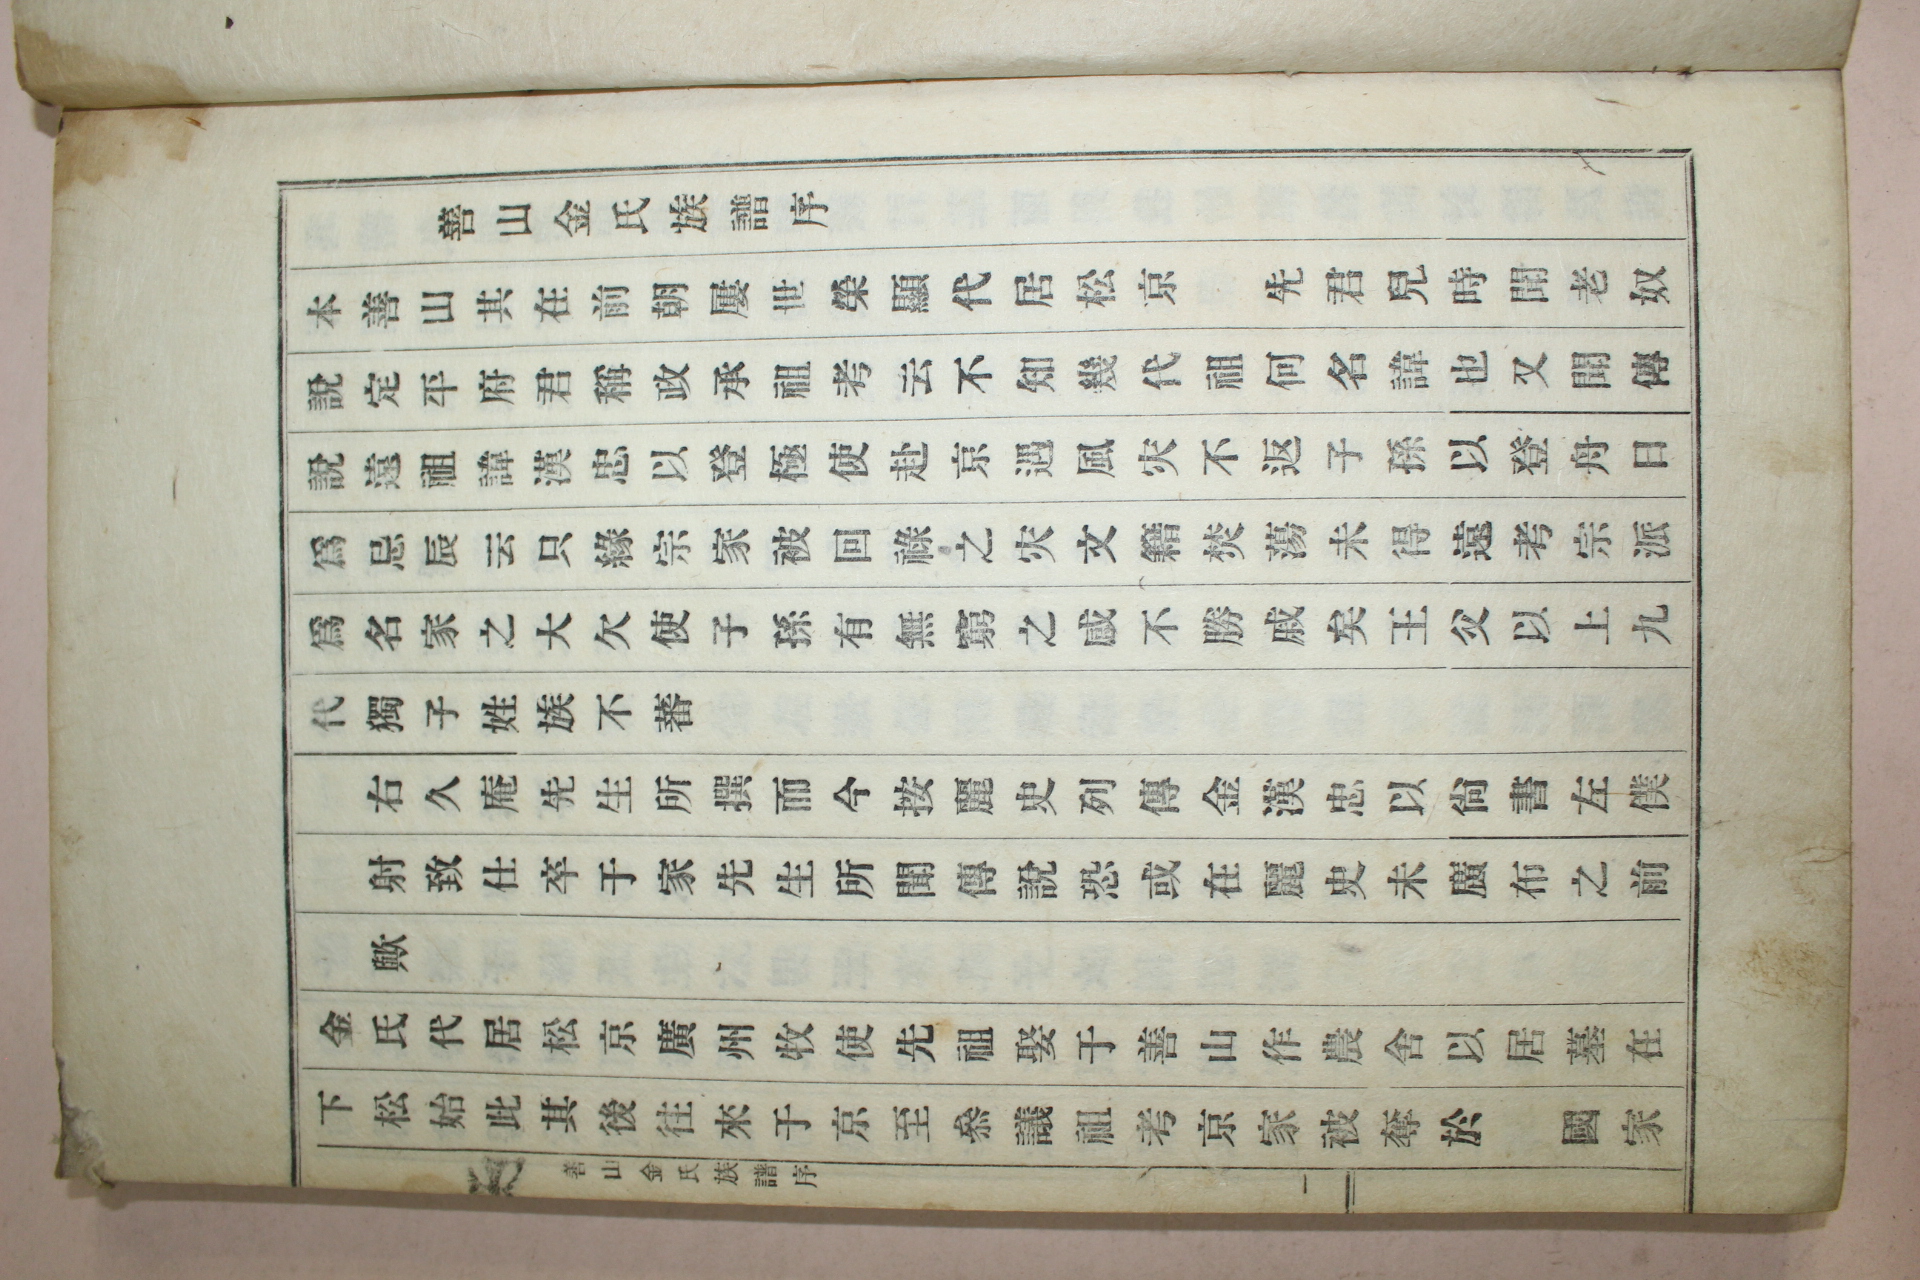 善山金氏族譜序
本善山其在前朝屢世榮顯代居松京 先君兒時聞老奴
說定平府君稱政承祖考云不知幾代祖何名諱也又聞傳
說遠祖諱漢忠以登極使赴京遇風灾不返子孫以登舟日
爲忌辰云只緣宗家被回祿之灾文籍焚蕩未得遠考宗派
爲名家之大欠使子孫有無窮之慽不勝戚矣王父以上九
代獨子姓族不蕃
右久庵先生所撰而今按麗史列傳金漢忠以尙書左僕
射致仕卒于家先生所聞傳說恐或在麗史未廣布之前
歟
金氏代居松京廣州牧使先祖娶于善山作農舍以居墓在
下松始此其後往來于京至叅議祖考京家被奪於 國家
善山金氏族譜序 一